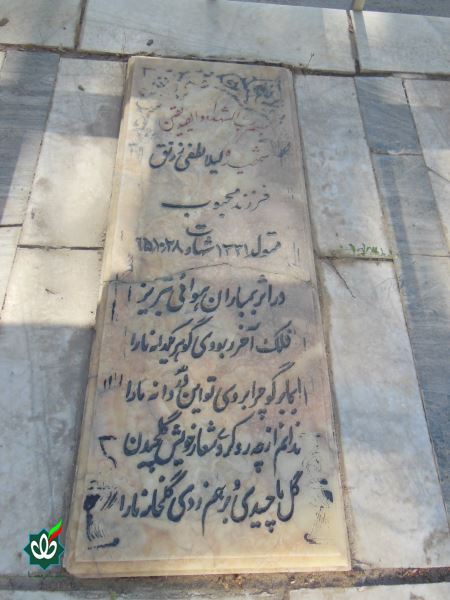 بسم رب الشهداء والصدیقین
شهیده لیلا لطفی زونق
فرزند محبوب
متولد ۱۳۳۱ شهادت ۶۵/۱۰/۲۸
در اثر بمباران هوائی تبریز
فلک آخر ربودی گوهر یکدانه ما را
اجل برگو چرا بردی تو این دردانه ما را
ندانم از چه رو کردی شعار خویش گلچیدن
گل ما چیدی و برهم زدی گلخانه ما را